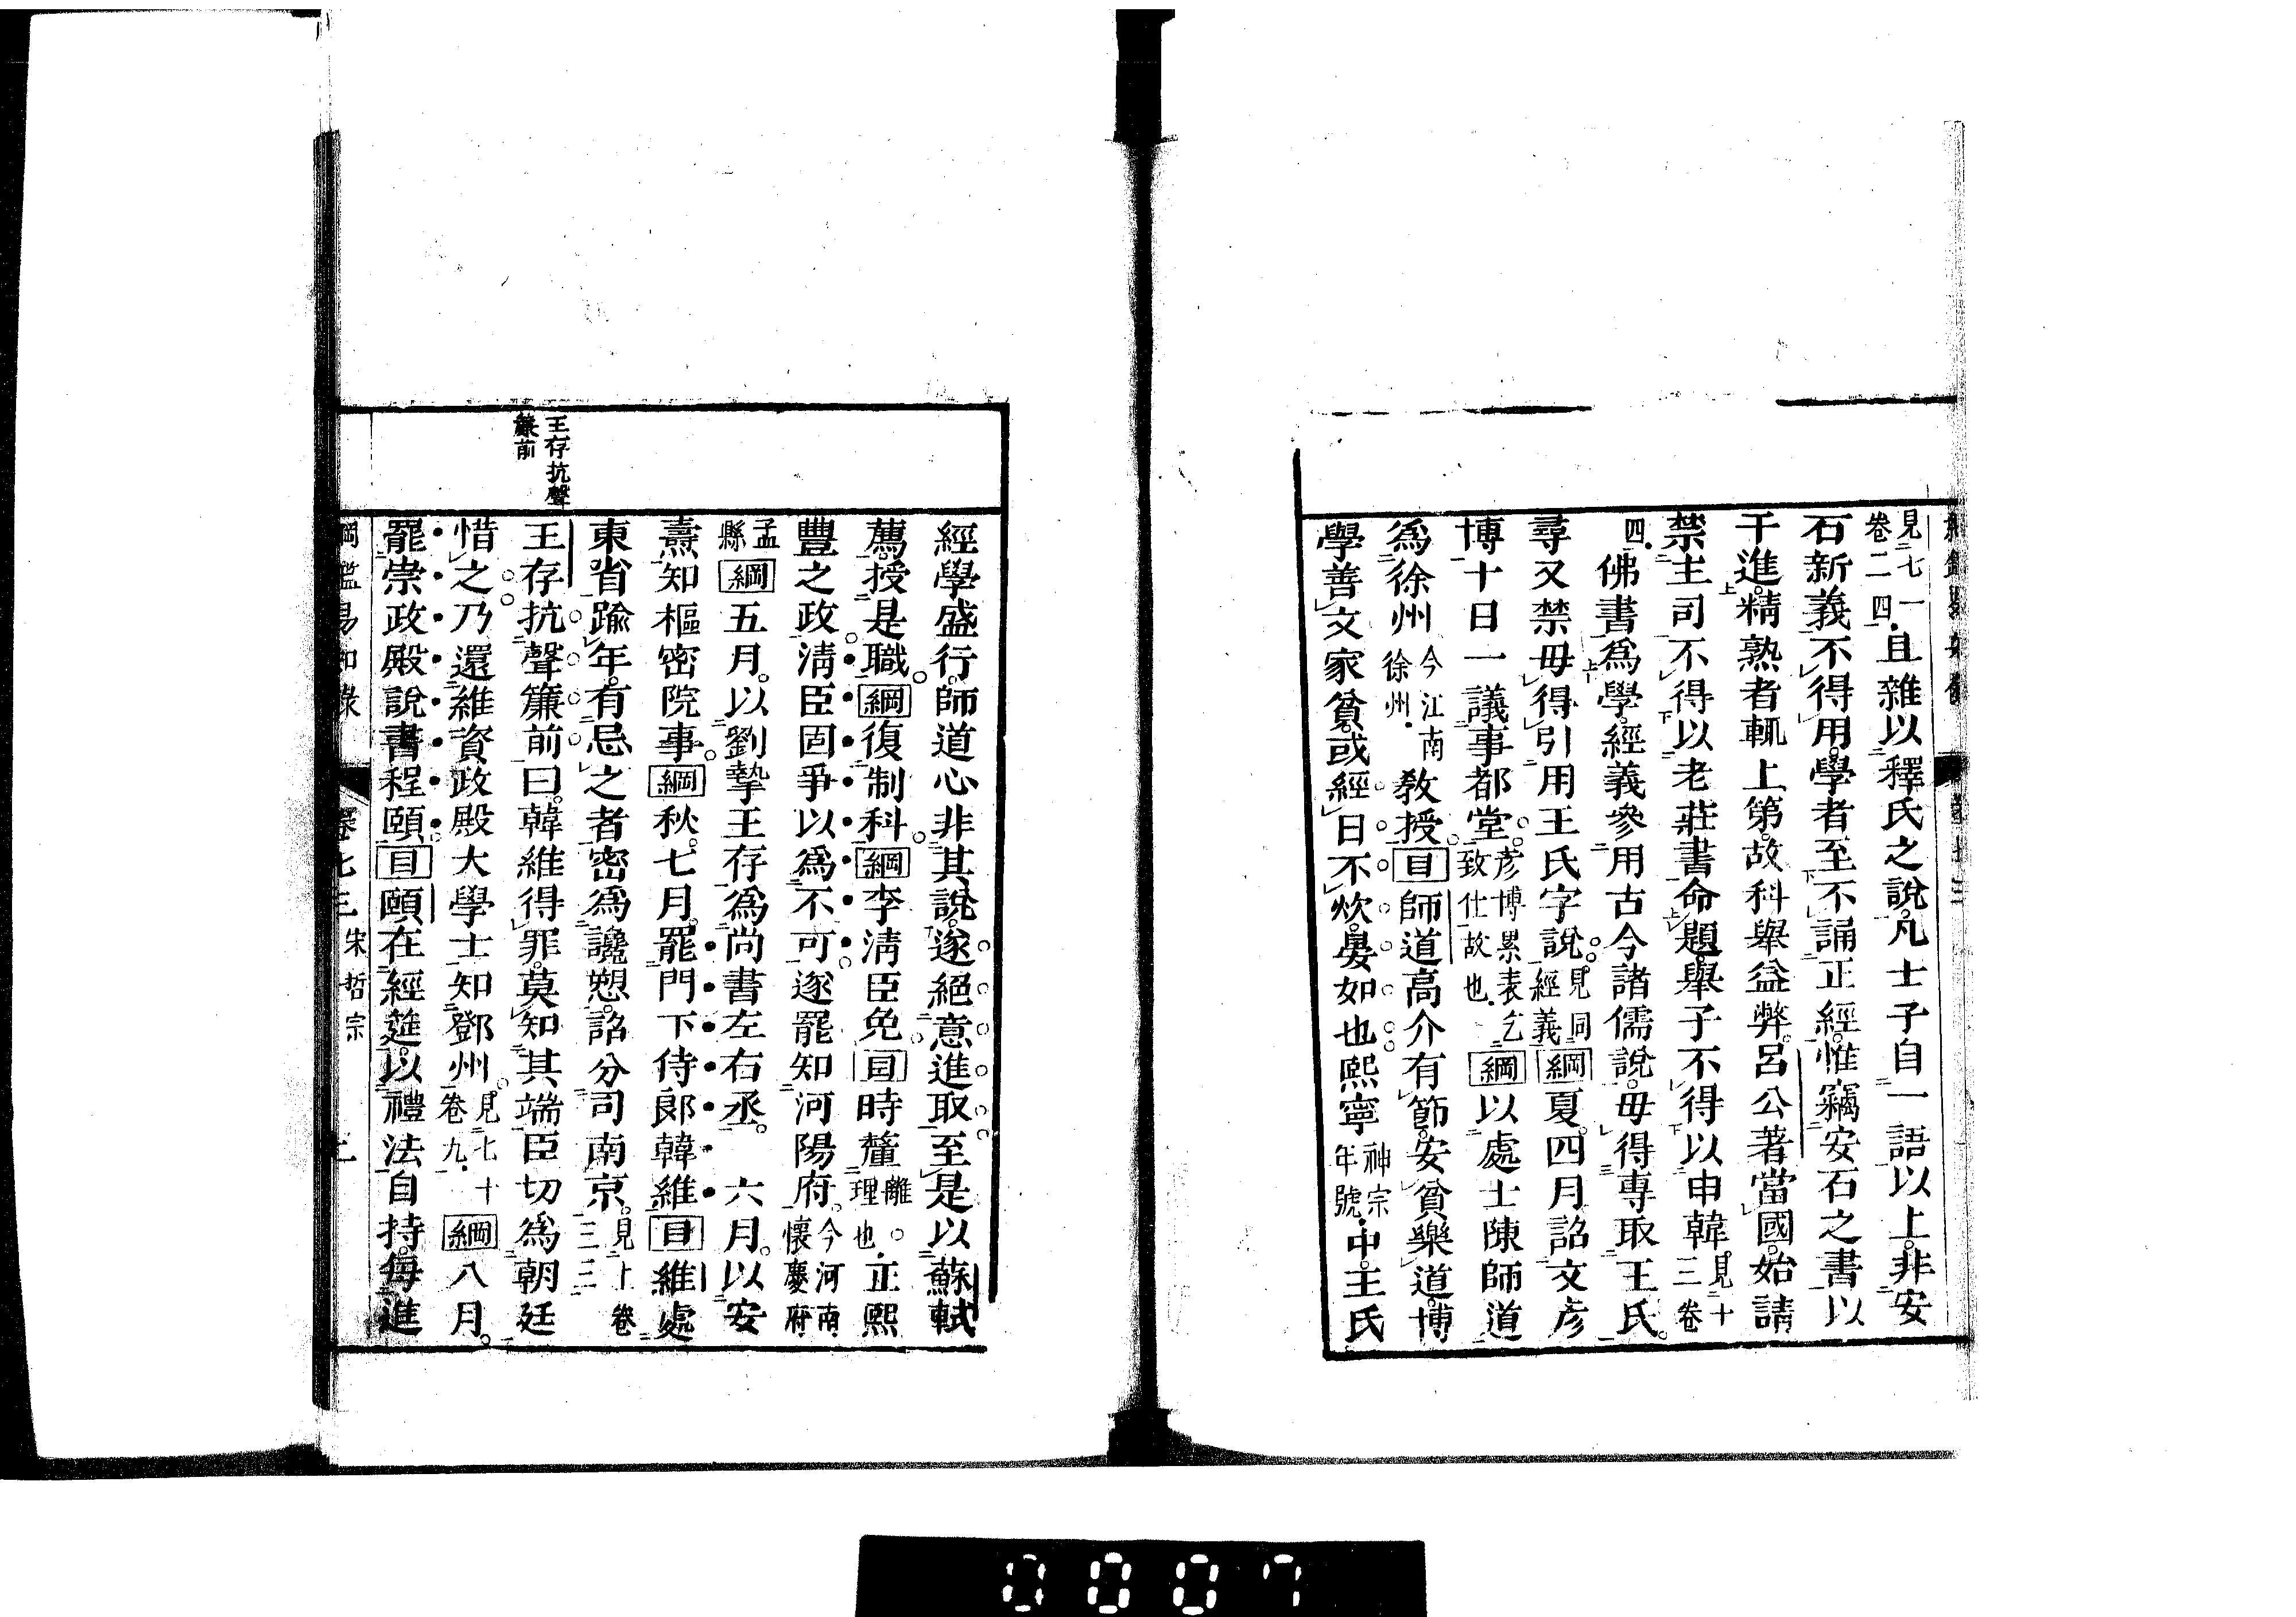 見七一卷二四且雜以釋氏之說凡士子自一語以上非安
石新義不得用學者至不誦正經惟竊安石之書以
干進精熟者輒上第故科舉益弊呂公著當國始請
禁主司不得以老莊書命題舉子不得以申韓見十三卷
四佛書爲學經義參用古今諸儒說毋得專取王氏
尋又禁毋得引用王氏字說見同經義綱夏四月詔文彥
博十日一議事都堂彥博累表乞致仕故也綱以處士陳師道
爲徐州今江南徐州敎授目師道高介有節安貧樂道博
學善文家貧或經日不炊晏如也熙寧神宗年號中王氏
經學盛行師道心非其說遂絕意進取至是以蘇軾
薦授是職綱復制科綱李淸臣免目時釐離理也正熙
豐之政淸臣固爭以爲不可遂罷知河陽府今河南懷慶府
孟縣綱五月以劉摯王存爲尚書左右丞六月以安
燾知樞密院事綱秋七月罷門下侍郞韓維目維處
東省踰年有忌之者密爲讒愬詔分司南京見上卷三三
王存抗聲簾前曰韓維得罪莫知其端臣切爲朝廷
惜之乃還維資政殿大學士知鄧州見七十卷九綱八月
罷崇政殿說書程頤目頤在經筵以禮法自持每進
王存抗聲
簾前
綱鑑易知錄 卷七三 宋哲宗
0007